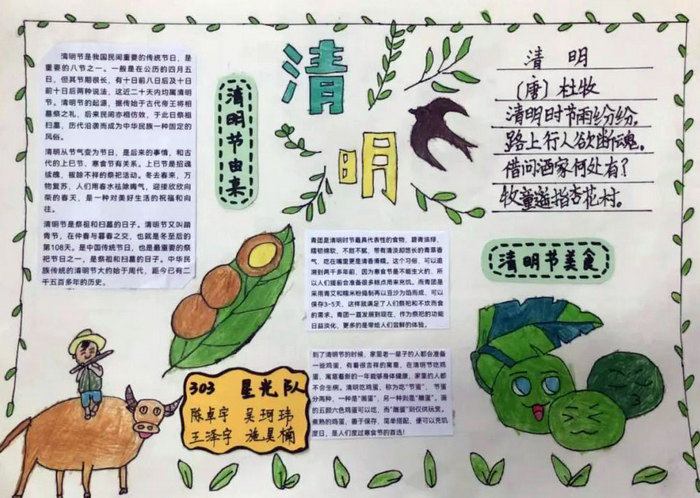 清明节是我国民间重要的传统节日，是
重要的八节之一。一般是在公历的四月五
日，但其节期很长，有十日前八日后及十日
前十日后两种说法，这近二十天内均属清明
节。清明节的起源，据传始于古代帝王将相
墓祭之礼，后来民间亦相仿效，于此日祭祖
扫墓，历代沿袭而成为中华民族一种固定的
风俗。
清明从节气变为节日，是后来的事情，和古
代的上巳节、寒食节有关系。上巳节是招魂
续魄，祓除不祥的祭祀活动。冬去春来，万
物复苏，人们用春水祛除晦气，迎接欣欣向
荣的春天，是一种对美好生活的祝福和向
往。
清明节是祭祖和扫墓的日子。清明节又叫踏
青节，在仲春与暮春之交，也就是冬至后的
第108天。是中国传统节日，也是最重要的祭
祀节日之一，是祭祖和扫墓的日子。中华民
族传统的清明节大约始于周代，距今已有二
千五百多年的历史。
清明节由来
清
明
清 明
(唐) 杜牧
清明时节雨纷纷，
路上行人欲断魂。
借问酒家何处有？
牧童遥指杏花村。
清明节美食
青团是清明时节最具代表性的食物，碧青油绿，
糯韧绵软，不甜不腻，带有清淡却悠长的青草香
气，吃在嘴里更是清香绵糯。这个习俗，可以追
溯到两千多年前，因为寒食节是不能生火的，所
以人们提前会准备很多糕点用来充饥。而青团是
采用青艾和糯米粉捣制再以豆沙为馅而成，可以
保存3-5天，这样就满足了人们祭祀和不炊而食
的需求。青团一直发展到现在，作为祭祀的功能
日益淡化，更多的是带给人们尝鲜的体验。
到了清明节的时候，家里老一辈子的人都会准备
一些鸡蛋，有着很吉祥的寓意，在清明节吃鸡
蛋，寓意着新的一年能够身体健康，家里的人都
不会生病。清明吃鸡蛋，称为吃“节蛋”，节蛋
分两种，一种是“画蛋”，另一种则是“雕蛋”。画
的五颜六色鸡蛋可以吃，而“雕蛋”则仅供玩赏。
煮熟的鸡蛋，善于保存，简单搭配，便可以充饥
度日，是人们度过寒食节的首选！
303 星光队
陈卓宇 吴珂玮
王泽宇 施昊楠